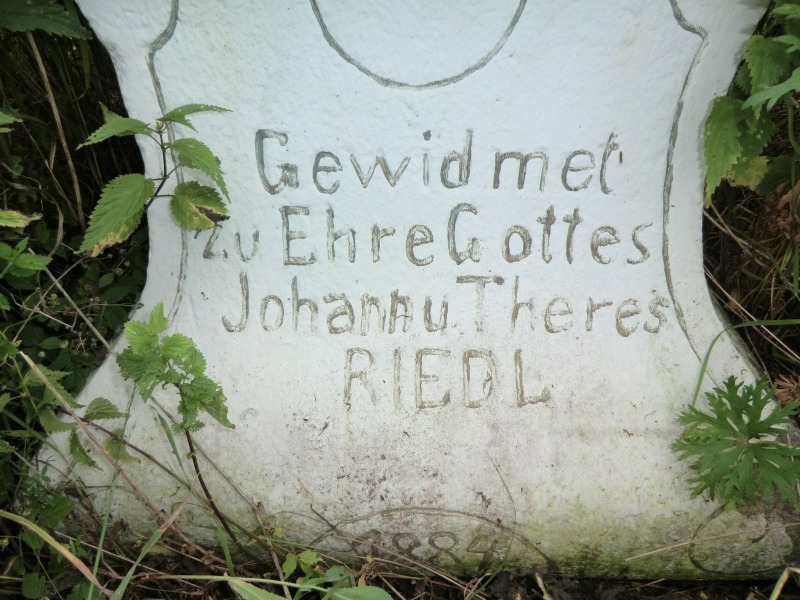 Gewidmet
zu Ehre Gottes
Johann u Theres
RIEDL
1884